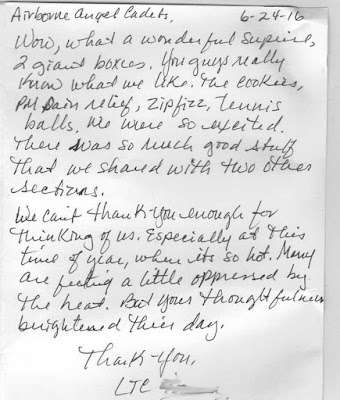 Airborne Angel Cadets, 6-24-16
Wow, what a wonderful suprise,
2 giant boxes. You guys really
know what we like. The cookies,
PM Pain relief, Zipfizz, Tennis
balls. We were so excited.
There was so much good stuff
that we shared with two other
sections.
We can't thank-you enough for
thinking of us. Especially at this
time of year, when its so hot. Many
are feeling a little oppressed by
the heat. But your thoughtfulness
brightened their day.
Thank-you,
LTC